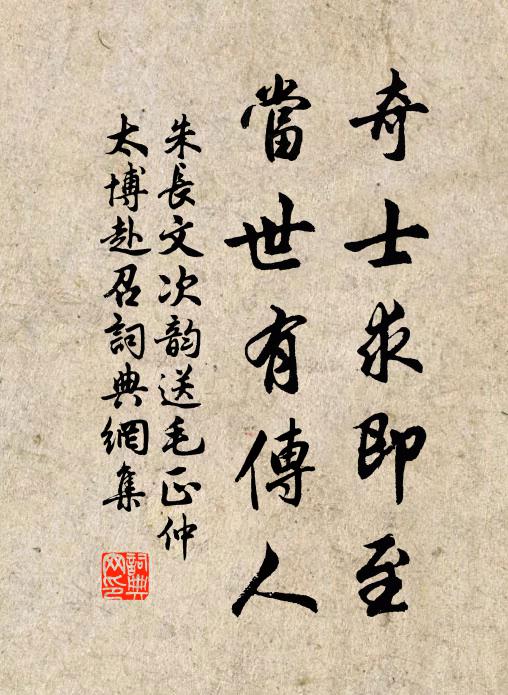 奇士求即至
當世有傳人
朱長文次韵送毛正仲
太博赴召詞典網集
詞典
网印